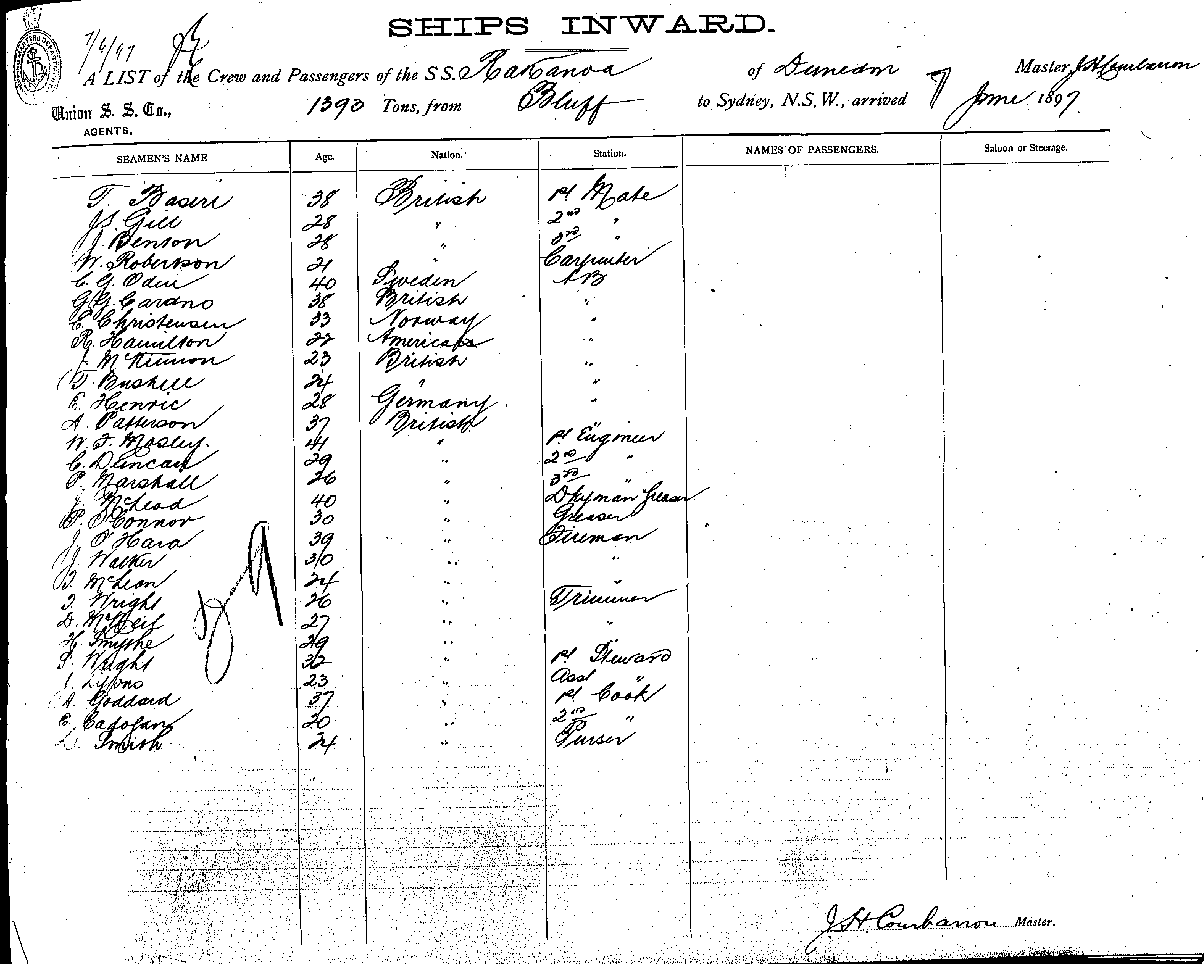 SHIPS INWARD.
7/6/97
A LIST of the Crew and Passengers of the S.S. Rakanoa of Dunedin Master, J H Courbarron
Union S. S. Co., 1393 Tons, from Bluff to Sydney, N.S.W., arrived 7 June 1897
AGENTS.
SEAMEN'S NAME Age. Nation. Station. NAMES OF PASSENGERS. Saloon or Steerage.
T. 38 British 1st Mate
Gill 28 " 2nd "
J. Benson 28 " 3rd "
W. Robertson 21 " Carpenter
C. G. Odin 40 Sweden AB
G. G. Cardno 38 British "
E. Christensen 33 Norway "
R. Hamilton 22 American "
J. McKinnon 23 British "
T. Bushell 24 " "
E. Henric 28 Germany "
A. Patterson 37 British
W. F. Mosley. 41 " 1st Engineer
C. Duncan 29 " 2nd "
P. Marshall 26 " 3rd "
J. McLeod 40 " Dkyman Greaser
P. O'Connor 30 " Greaser
J. O'Hara 39 " Fireman
J. Walker 30 " "
D. McLean 24 " "
T. Wright 26 " Trimmer
D. 27 " "
H. Smythe 29 "
S. Wright 32 " 1st Steward
Lyons 23 " Asst "
A. Goddard 37 " 1st Cook
E. Cadogan 20 " 2nd "
Smith 24 " Purser
J H Courbarron Master.